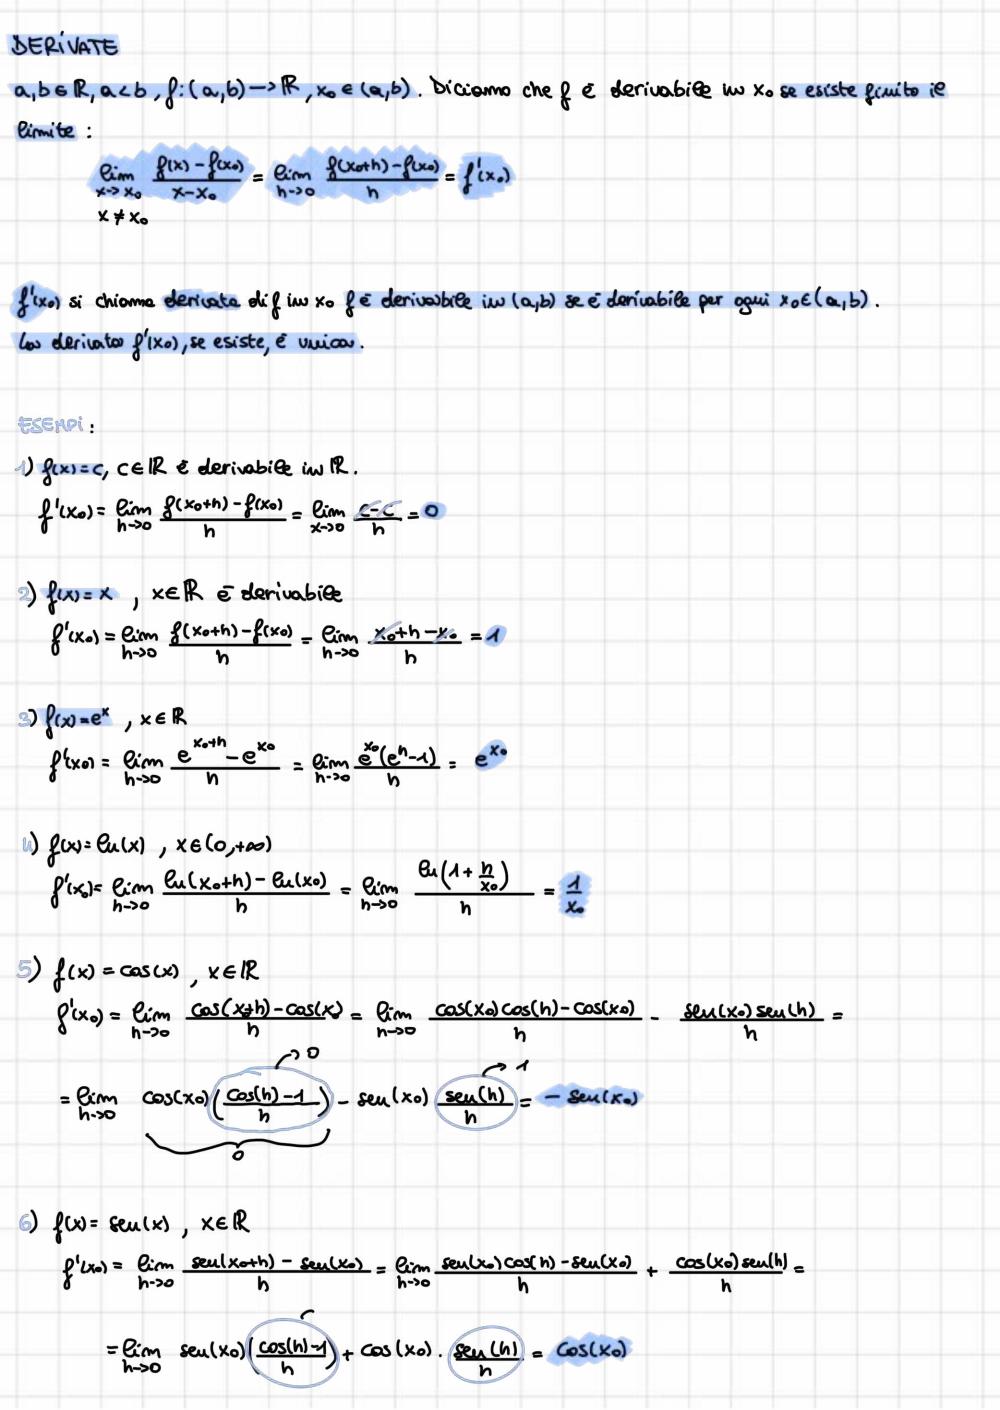 DERIVATE
a,b∈ℝ, a<b, f:(a,b)→ℝ, x₀∈(a,b). Diciamo che f è derivabile in x₀ se esiste finito il
limite :
lim x→x₀ x≠x₀ (f(x)-f(x₀))/(x-x₀) = lim h→0 (f(x₀+h)-f(x₀))/h = f'(x₀)
f'(x₀) si chiama derivata di f in x₀ f è derivabile in (a,b) se è derivabile per ogni x₀∈(a,b).
La derivata f'(x₀), se esiste, è unica.
ESEMPI :
1) f(x)=c, c∈ℝ è derivabile in ℝ.
f'(x₀)= lim h→0 (f(x₀+h)-f(x₀))/h = lim x→0 (c-c)/h = 0
2) f(x)=x , x∈ℝ è derivabile
f'(x₀)= lim h→0 (f(x₀+h)-f(x₀))/h = lim h→0 (x₀+h-x₀)/h = 1
3) f(x)=eˣ , x∈ℝ
f'(x₀) = lim h→0 (e^(x₀+h) - e^(x₀))/h = lim h→0 (e^(x₀)(e^h-1))/h = e^(x₀)
4) f(x)=ln(x) , x∈(0,+∞)
f'(x₀)= lim h→0 (ln(x₀+h) - ln(x₀))/h = lim h→0 ln(1+h/x₀)/h = 1/x₀
5) f(x)=cos(x) , x∈ℝ
f'(x₀) = lim h→0 (cos(x+h)-cos(x))/h = lim h→0 (cos(x₀)cos(h)-cos(x₀))/h - (sen(x₀)sen(h))/h =
→0 →1
= lim h→0 cos(x₀)((cos(h)-1)/h) - sen(x₀) sen(h)/h = - sen(x₀)
0
6) f(x)= sen(x) , x∈ℝ
f'(x₀) = lim h→0 (sen(x₀+h) - sen(x₀))/h = lim h→0 (sen(x₀)cos(h)-sen(x₀))/h + (cos(x₀)sen(h))/h =
= lim h→0 sen(x₀)((cos(h)-1)/h) + cos(x₀) · sen(h)/h = cos(x₀)